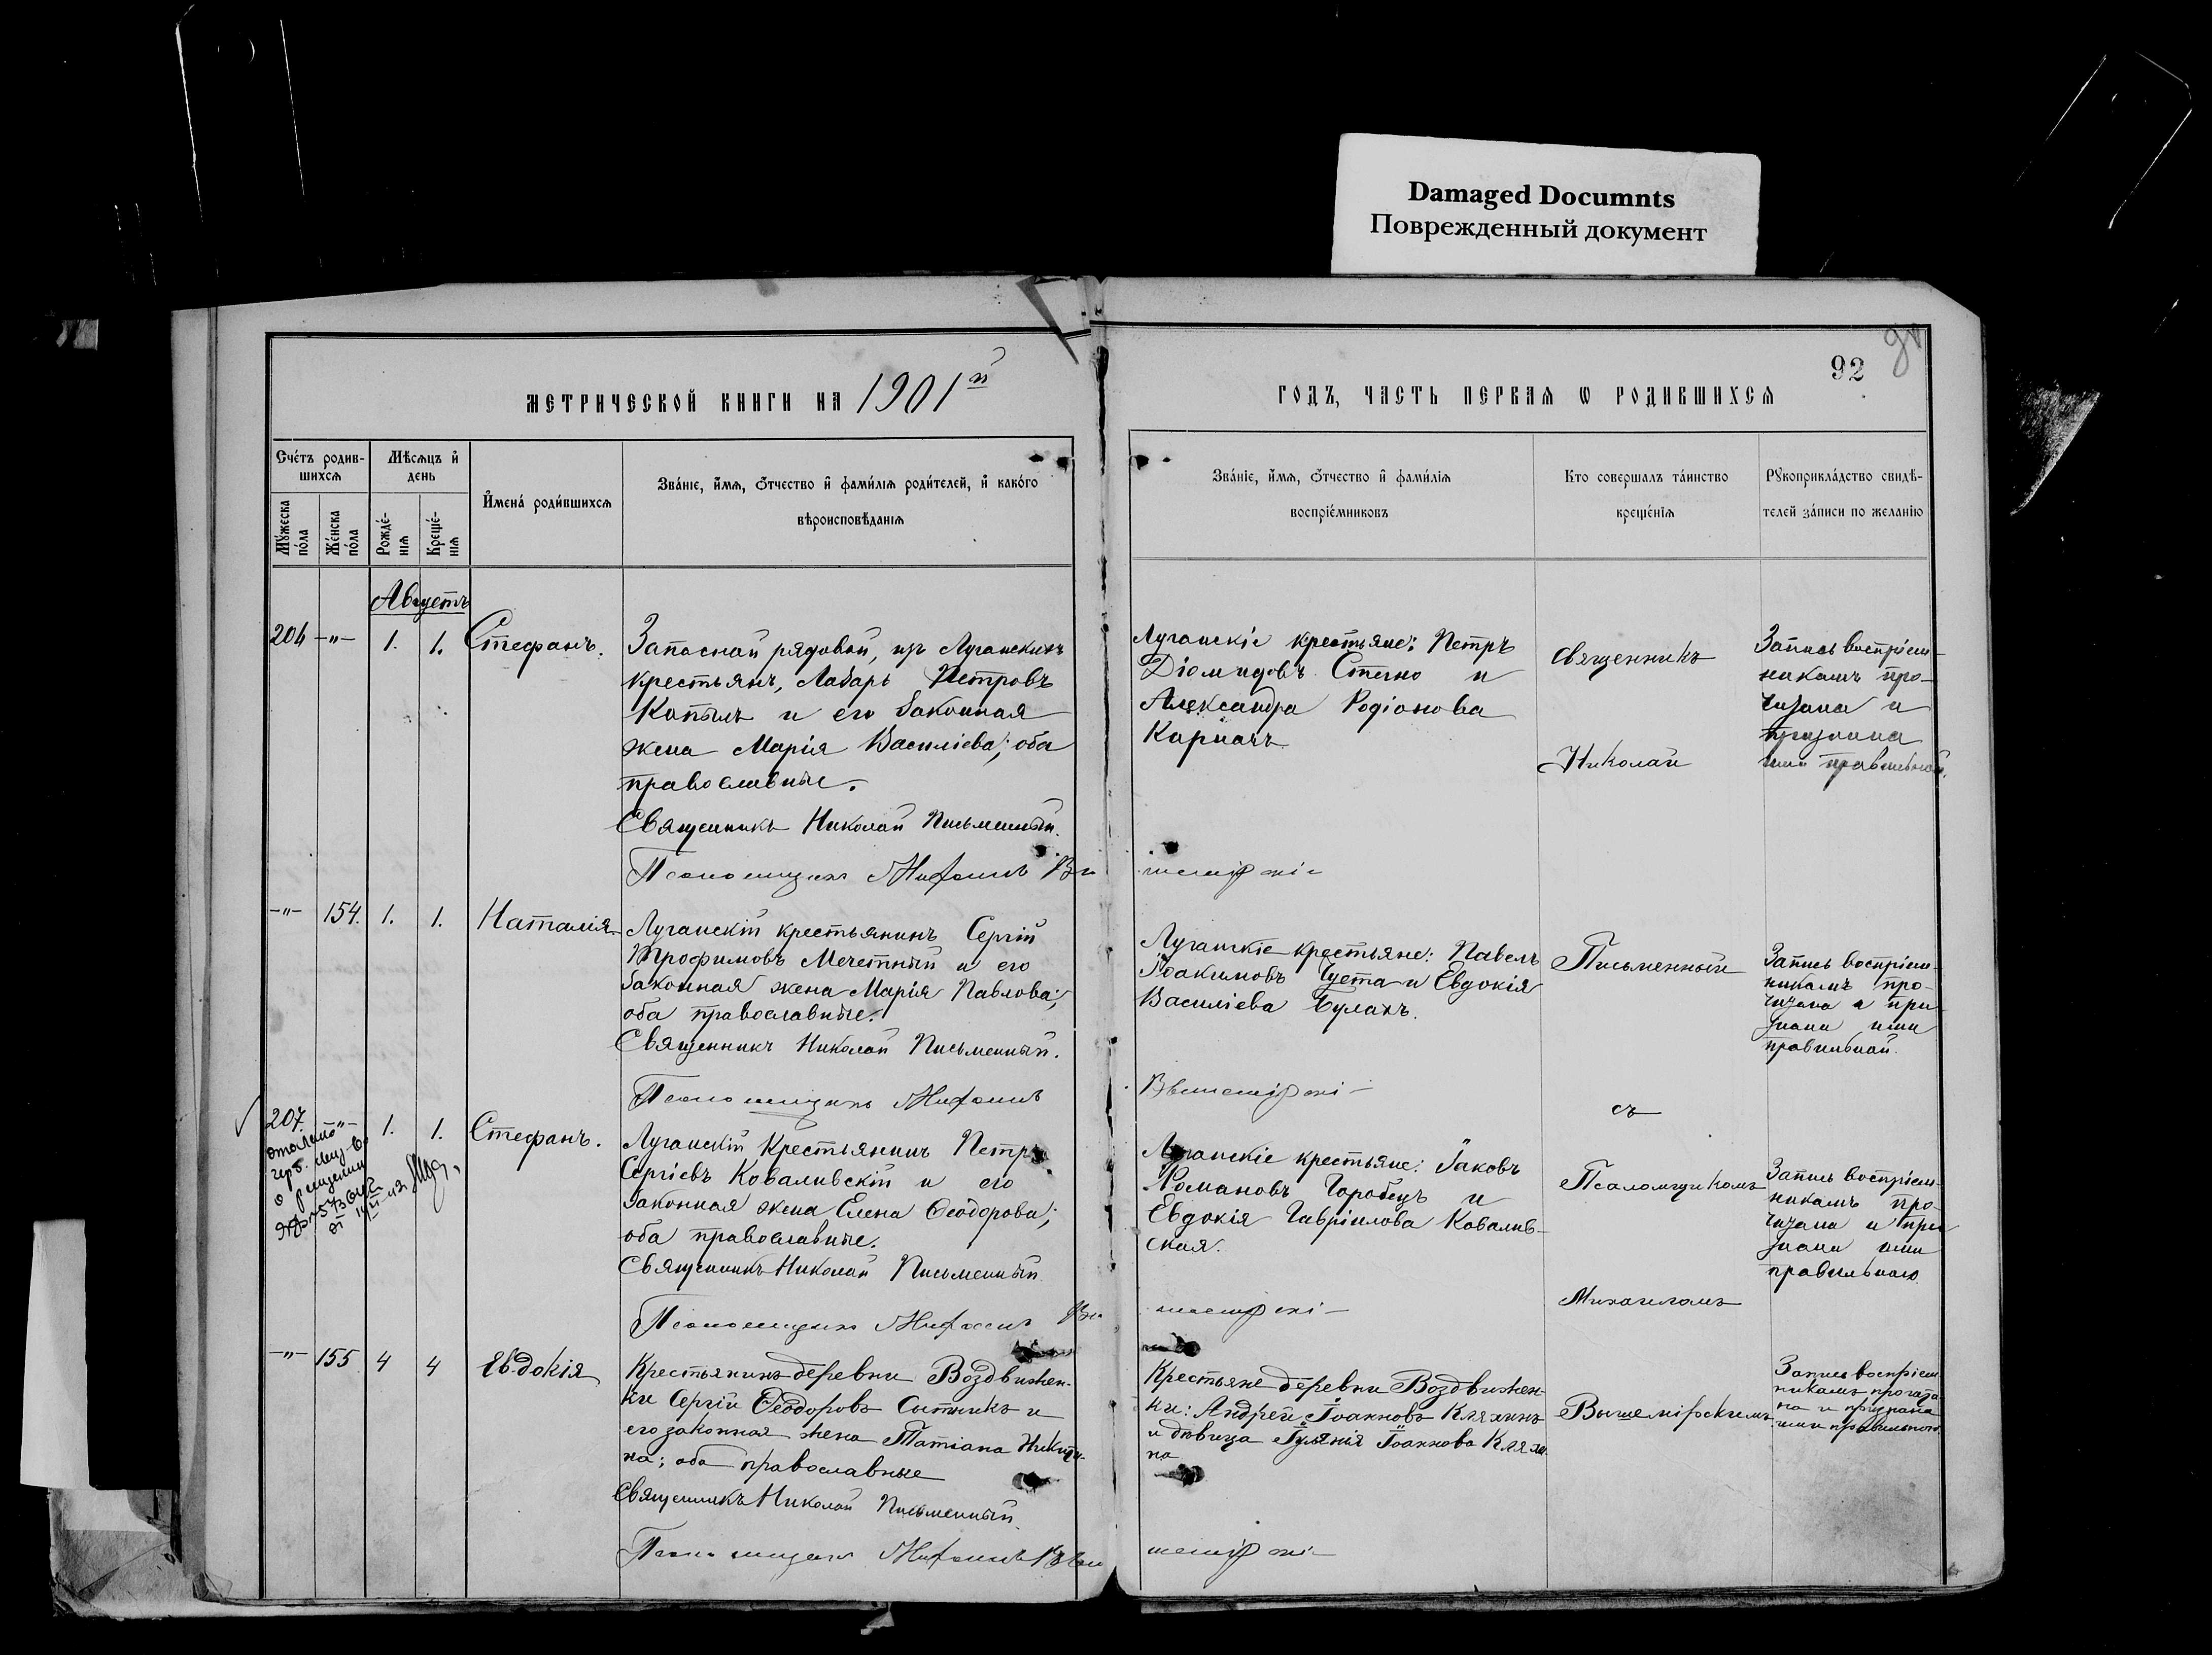 Damaged Documnts
Поврежденный документ
92
МЕТРИЧЕСКОЙ КНИГИ НА 1901й
ГОДЪ, ЧАСТЬ ПЕРВАЯ Ѡ РОДИВШИХСЯ
Счетъ родив-
шихся
Мѣсяцъ и
день
Мужеска
пола
Женска
пола
Рожде-
нія
Креще-
нія
Имена родившихся
Званіе, имя, отчество и фамилія родителей, и какого
вѣроисповѣданія
Званіе, имя, отчество и фамилія
воспріемниковъ
Кто совершалъ таинство
крещенія
Рукоприкладство свидѣ-
телей записи по желанію
Августъ
206 -"- 1. 1. Стефанъ.
Запасной рядовой, изъ Луганскихъ
крестьянъ, Лазарь Петровъ
Копылъ и его законная
жена Марія Василіева; оба
православные.
Священникъ Николай Письменный.
Псаломщикъ
Луганскіе крестьяне: Петръ
Діомидовъ Стешо и
Александра Родіонова
Карначъ
Священникъ
Николай
Запись воспріем-
никамъ про-
читана и
признана
ими правильной.
-"- 154. 1. 1. Наталія.
Луганскій крестьянинъ Сергій
Трофимовъ Мечетный и его
законная жена Марія Павлова;
оба православные.
Священникъ Николай Письменный.
Псаломщикъ
Луганскіе крестьяне: Павелъ
Іоакимовъ и Евдокія
Василіева Булахъ.
Письменный
съ
Запись воспріем-
никамъ про-
читана и при-
знана ими
правильной.
207. -"- 1. 1. Стефанъ.
Луганскій Крестьянинъ Петръ
Сергіевъ Коваливскій и его
законная жена Елена Ѳеодорова;
оба православные.
Священникъ Николай Письменный
Псаломщикъ
Луганскіе крестьяне: Іаковъ
Романовъ Горобецъ и
Евдокія Гавріилова Ковалив-
ская.
Псаломщикомъ
Михаиломъ
Запись воспріем-
никамъ про-
читана и при-
знана ими
правильною.
-"- 155 4 4 Евдокія
Крестьянинъ деревни Воздвижен-
ки Сергій Ѳеодоровъ Сытникъ и
его законная жена Татіана Никити-
на; оба православные
Священникъ Николай Письменный.
Псаломщикъ
Крестьяне деревни Воздвижен-
ки: Андрей Іоанновъ Кляхинъ
и дѣвица Іуліанія Іоаннова Кляхи-
на
Вышемірскимъ
Запись воспріем-
никамъ прочита-
на и признана
ими правильною.